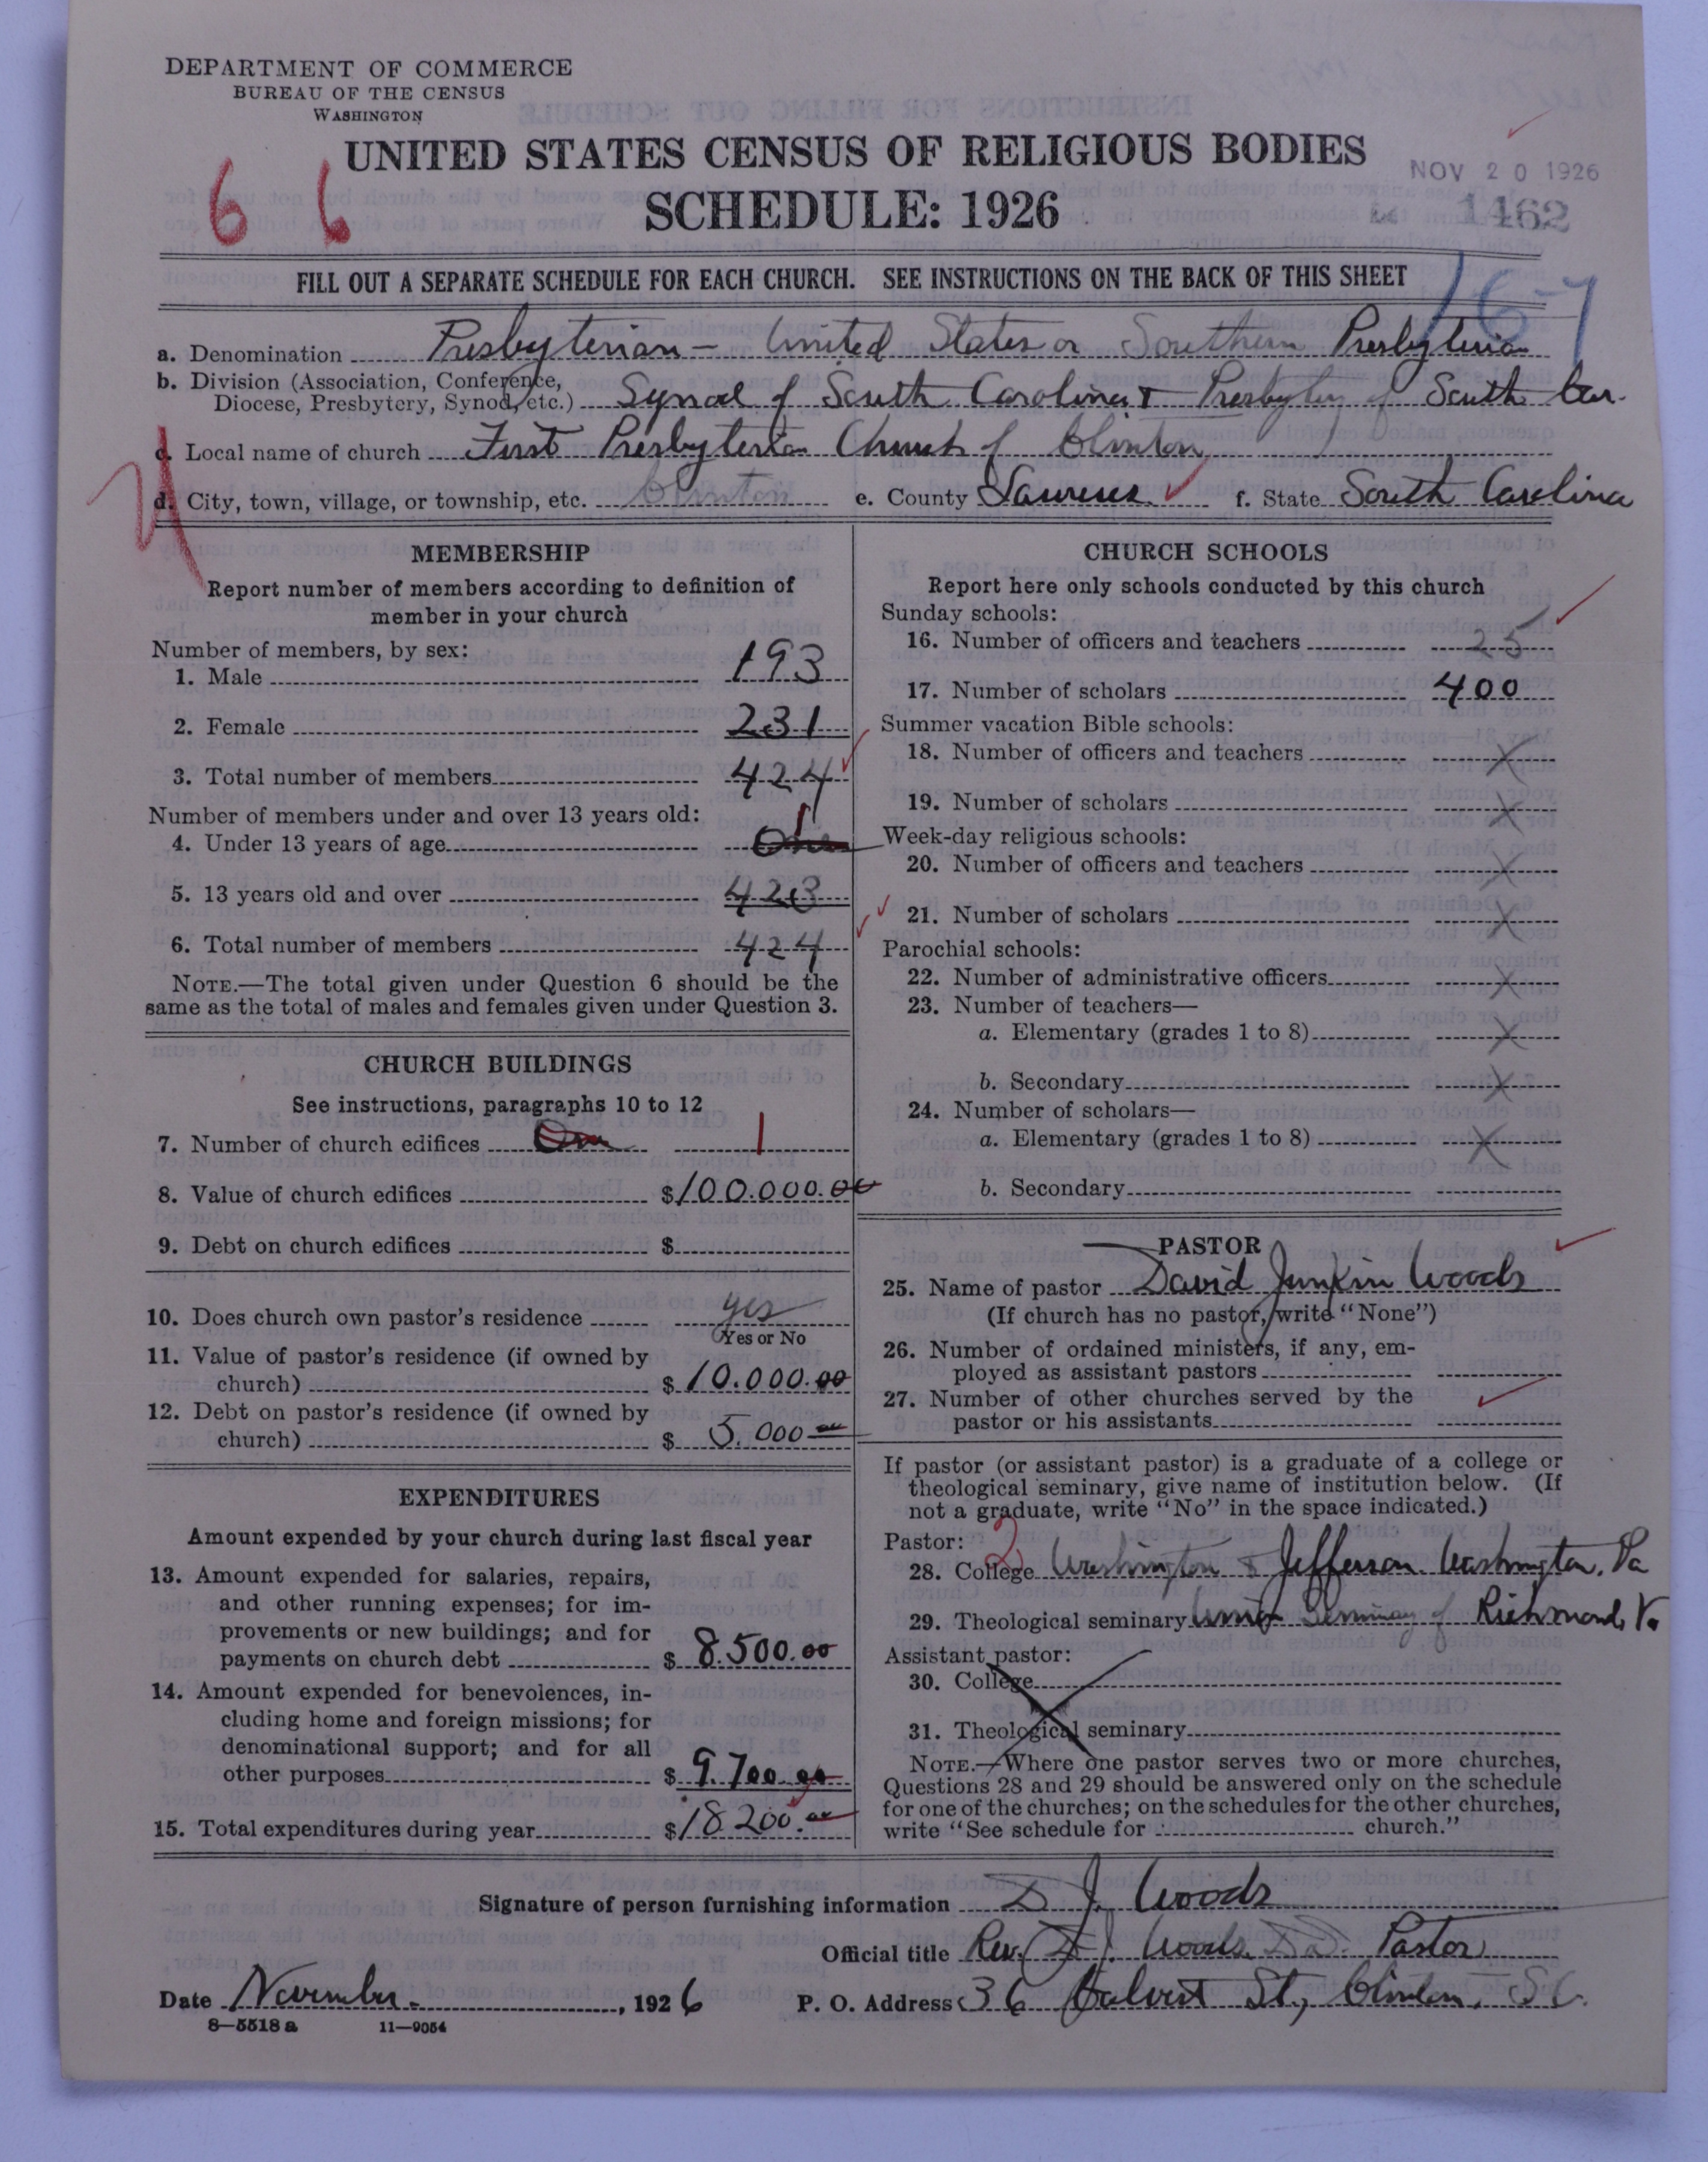 DEPARTMENT OF COMMERCE
BUREAU OF THE CENSUS
WASHINGTON
UNITED STATES CENSUS OF RELIGIOUS BODIES
SCHEDULE: 1926
6 6
NOV 20 1926
1462
FILL OUT A SEPARATE SCHEDULE FOR EACH CHURCH. SEE INSTRUCTIONS ON THE BACK OF THIS SHEET
16-7
a. Denomination Presbyterian - United States or Southern Presbyterian
b. Division (Association, Conference, Diocese, Presbytery, Synod, etc.) Synod of South Carolina & Presbytery of South Car.
c. Local name of church First Presbyterian Church of Clinton
d. City, town, village, or township, etc. Clinton e. County Laurens f. State South Carolina
MEMBERSHIP
Report number of members according to definition of
member in your church
Number of members, by sex:
1. Male 193
2. Female 231
3. Total number of members 424
Number of members under and over 13 years old:
4. Under 13 years of age One 1
5. 13 years old and over 423
6. Total number of members 424
NOTE.—The total given under Question 6 should be the
same as the total of males and females given under Question 3.
CHURCH BUILDINGS
See instructions, paragraphs 10 to 12
7. Number of church edifices One 1
8. Value of church edifices $100.000.00
9. Debt on church edifices $
10. Does church own pastor's residence yes
Yes or No
11. Value of pastor's residence (if owned by
church) $10.000.00
12. Debt on pastor's residence (if owned by
church) $5.000 00
EXPENDITURES
Amount expended by your church during last fiscal year
13. Amount expended for salaries, repairs,
and other running expenses; for im-
provements or new buildings; and for
payments on church debt $8.500.00
14. Amount expended for benevolences, in-
cluding home and foreign missions; for
denominational support; and for all
other purposes $9.700.00
15. Total expenditures during year $18.200.00
CHURCH SCHOOLS
Report here only schools conducted by this church
Sunday schools:
16. Number of officers and teachers 25
17. Number of scholars 400
Summer vacation Bible schools:
18. Number of officers and teachers X
19. Number of scholars X
Week-day religious schools:
20. Number of officers and teachers X
21. Number of scholars X
Parochial schools:
22. Number of administrative officers X
23. Number of teachers—
a. Elementary (grades 1 to 8) X
b. Secondary X
24. Number of scholars—
a. Elementary (grades 1 to 8) X
b. Secondary
PASTOR
25. Name of pastor David Junkin Woods
(If church has no pastor, write "None")
26. Number of ordained ministers, if any, em-
ployed as assistant pastors
27. Number of other churches served by the
pastor or his assistants
If pastor (or assistant pastor) is a graduate of a college or
theological seminary, give name of institution below. (If
not a graduate, write "No" in the space indicated.)
Pastor: 2
28. College Washington & Jefferson. Washington, Pa
29. Theological seminary Union Seminary of Richmond, Va.
Assistant pastor:
30. College
31. Theological seminary
NOTE.—Where one pastor serves two or more churches,
Questions 28 and 29 should be answered only on the schedule
for one of the churches; on the schedules for the other churches,
write "See schedule for church."
Signature of person furnishing information D J. Woods
Official title Rev. D J. Woods, D D. Pastor
Date November 1926 P. O. Address 36 Calvert St, Clinton, S.C.
8—5518 a 11—9054